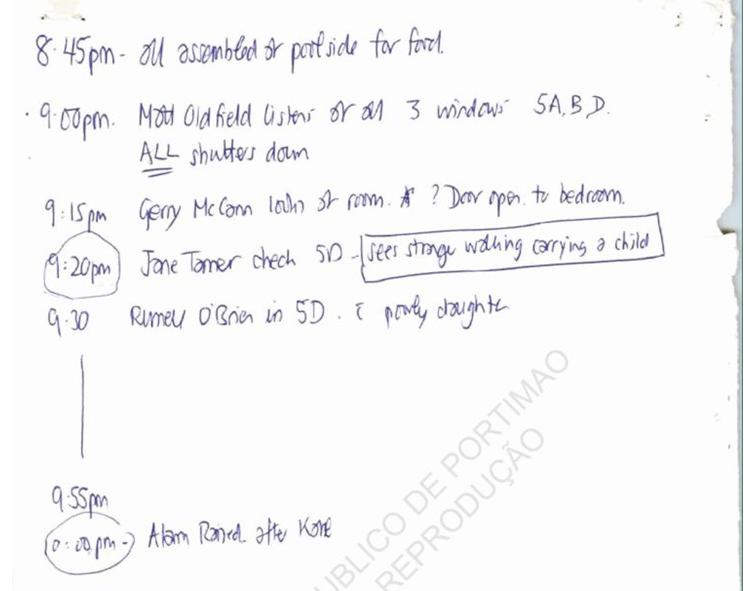 8.45pm - all assembled at poolside for food.
9.00pm. Matt Oldfield listens at all 3 windows 5A, B, D.
ALL shutters down
9:15pm Gerry McCann looks at room. A ? Door open to bedroom.
9:20pm Jane Tanner check 5D - sees stranger walking carrying a child
9.30 Russell O'Brien in 5D. poorly daughter
9.55pm
10:00pm - Alarm Raised after Kate
UBLICO DE PORTIMAO
REPRODUÇÃO